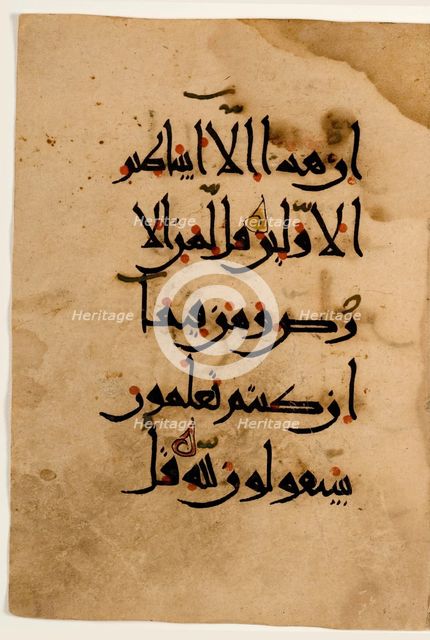 ان هذا الا اسطير
الاولين قل لمن الا
Heritage Heritage
رض ومن فيها
Heritage Heritage
ان كنتم تعلمون
Heritage Heritage
سيقولون لله قل